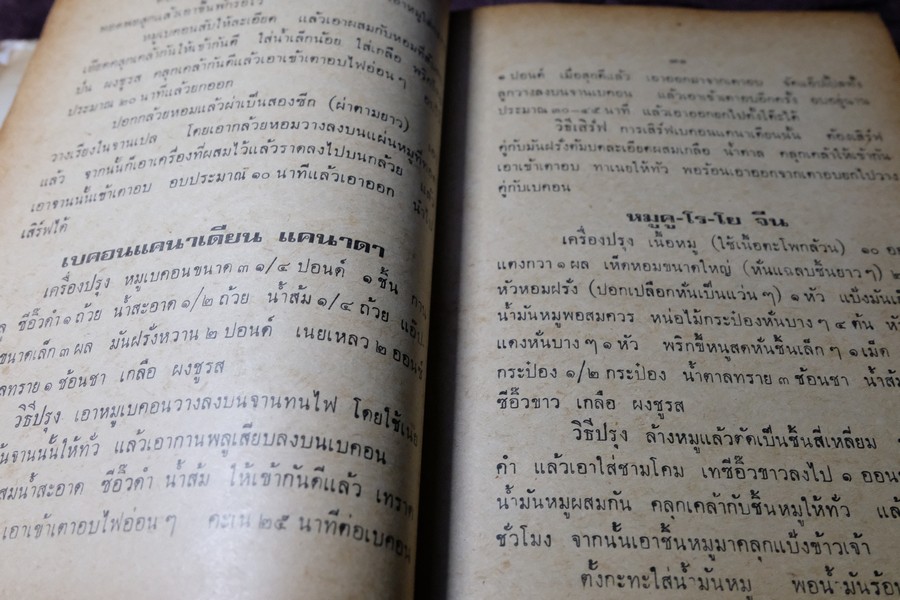 พอดพอสุกแล้วเอาขึ้นพักรอไว้
หมูเบคอนสับให้ละเอียด แล้วเอาผสมกับหอมที่
เตียดคลุกเคล้ากันให้เข้ากันดี ใส่น้ำเล็กน้อย ใส่เกลือ พริก
ป่น ผงชูรส คลุกเคล้ากันดีแล้วเอาเข้าเตาอบไฟอ่อนๆ
ประมาณ ๒๐ นาทีแล้วยกออก
ปอกกล้วยหอมแล้วผ่าเป็นสองซีก (ผ่าตามยาว)
วางเรียงในจานเปล โดยเอากล้วยหอมวางลงบนแผ่นหมูที่
แล้ว จากนั้นก็เอาเครื่องที่ผสมไว้แล้วราดลงไปบนกล้วย แล้ว
เอาจานนั้นเข้าเตาอบ อบประมาณ ๑๐ นาทีแล้วเอาออก นำไป
เสิร์ฟได้
เบคอนแคนาเดียน แคนาดา
เครื่องปรุง หมูเบคอนขนาด ๓ ๑/๔ ปอนด์ ๑ ชิ้น กาน
ซีอิ๊วดำ ๑ ถ้วย น้ำสะอาด ๑/๒ ถ้วย น้ำส้ม ๑/๔ ถ้วย แอ๊ป
ขนาดเล็ก ๓ ผล มันฝรั่งหวาน ๒ ปอนด์ เนยเหลว ๒ ออนซ์
ลทราย ๑ ช้อนชา เกลือ ผงชูรส
วิธีปรุง เอาหมูเบคอนวางลงบนจานทนไฟ โดยใช้เนย
นจานนั้นให้ทั่ว แล้วเอากานพลูเสียบลงบนเบคอน
สมน้ำสะอาด ซีอิ๊วดำ น้ำส้ม ให้เข้ากันดีแล้ว เทราด
เอาเข้าเตาอบไฟอ่อนๆ คะเน ๒๕ นาทีต่อเบคอน
๓๑
๑ ปอนด์ เมื่อสุกดีแล้ว เอาออกมาจากเตาอบ จัดแอ๊ปเปิ้ลทั้ง
ลูกวางลงบนจานเบคอน แล้วเอาเข้าเตาอบอีกครั้ง อบอยู่นาน
ประมาณ ๓๐-๔๕ นาที แล้วเอาออกยกไปตั้งโต๊ะได้
วิธีเสิร์ฟ การเสิร์ฟเบคอนแคนาเดียนนั้น ต้องเสิร์ฟ
คู่กับมันฝรั่งต้มบดละเอียดผสมเกลือ น้ำตาล คลุกเคล้าให้เข้ากัน
เอาเข้าเตาอบ ทาเนยให้ทั่ว พอร้อนเอาออกจากเตาอบยกไปวาง
คู่กับเบคอน
หมูคู-โร-โย จีน
เครื่องปรุง เนื้อหมู (ใช้เนื้อตะโพกล้วน) ๑๐ ออ
แตงกวา ๑ ผล เห็ดหอมขนาดใหญ่ (หั่นแฉลบชิ้นยาวๆ) ๒
หัวหอมฝรั่ง (ปอกเปลือกหั่นเป็นแว่นๆ) ๑ หัว แป้งมันเ
น้ำมันหมูพอสมควร หน่อไม้กระป๋องหั่นบางๆ ๔ ต้น หั
แดงหั่นบางๆ ๑ หัว พริกขี้หนูสดหั่นชิ้นเล็กๆ ๑ เม็ด
กระป๋อง ๑/๒ กระป๋อง น้ำตาลทราย ๓ ช้อนชา น้ำส้ม
ซีอิ๊วขาว เกลือ ผงชูรส
วิธีปรุง ล้างหมูแล้วตัดเป็นชิ้นสี่เหลี่ยม
คำ แล้วเอาใส่ชามโคม เทซีอิ๊วขาวลงไป ๑ ออน
น้ำมันหมูผสมกัน คลุกเคล้ากับชิ้นหมูให้ทั่ว แล้
ชั่วโมง จากนั้นเอาชิ้นหมูมาคลุกแป้งข้าวเจ้า
ตั้งกะทะใส่น้ำมันหมู พอน้ำมันร้อน